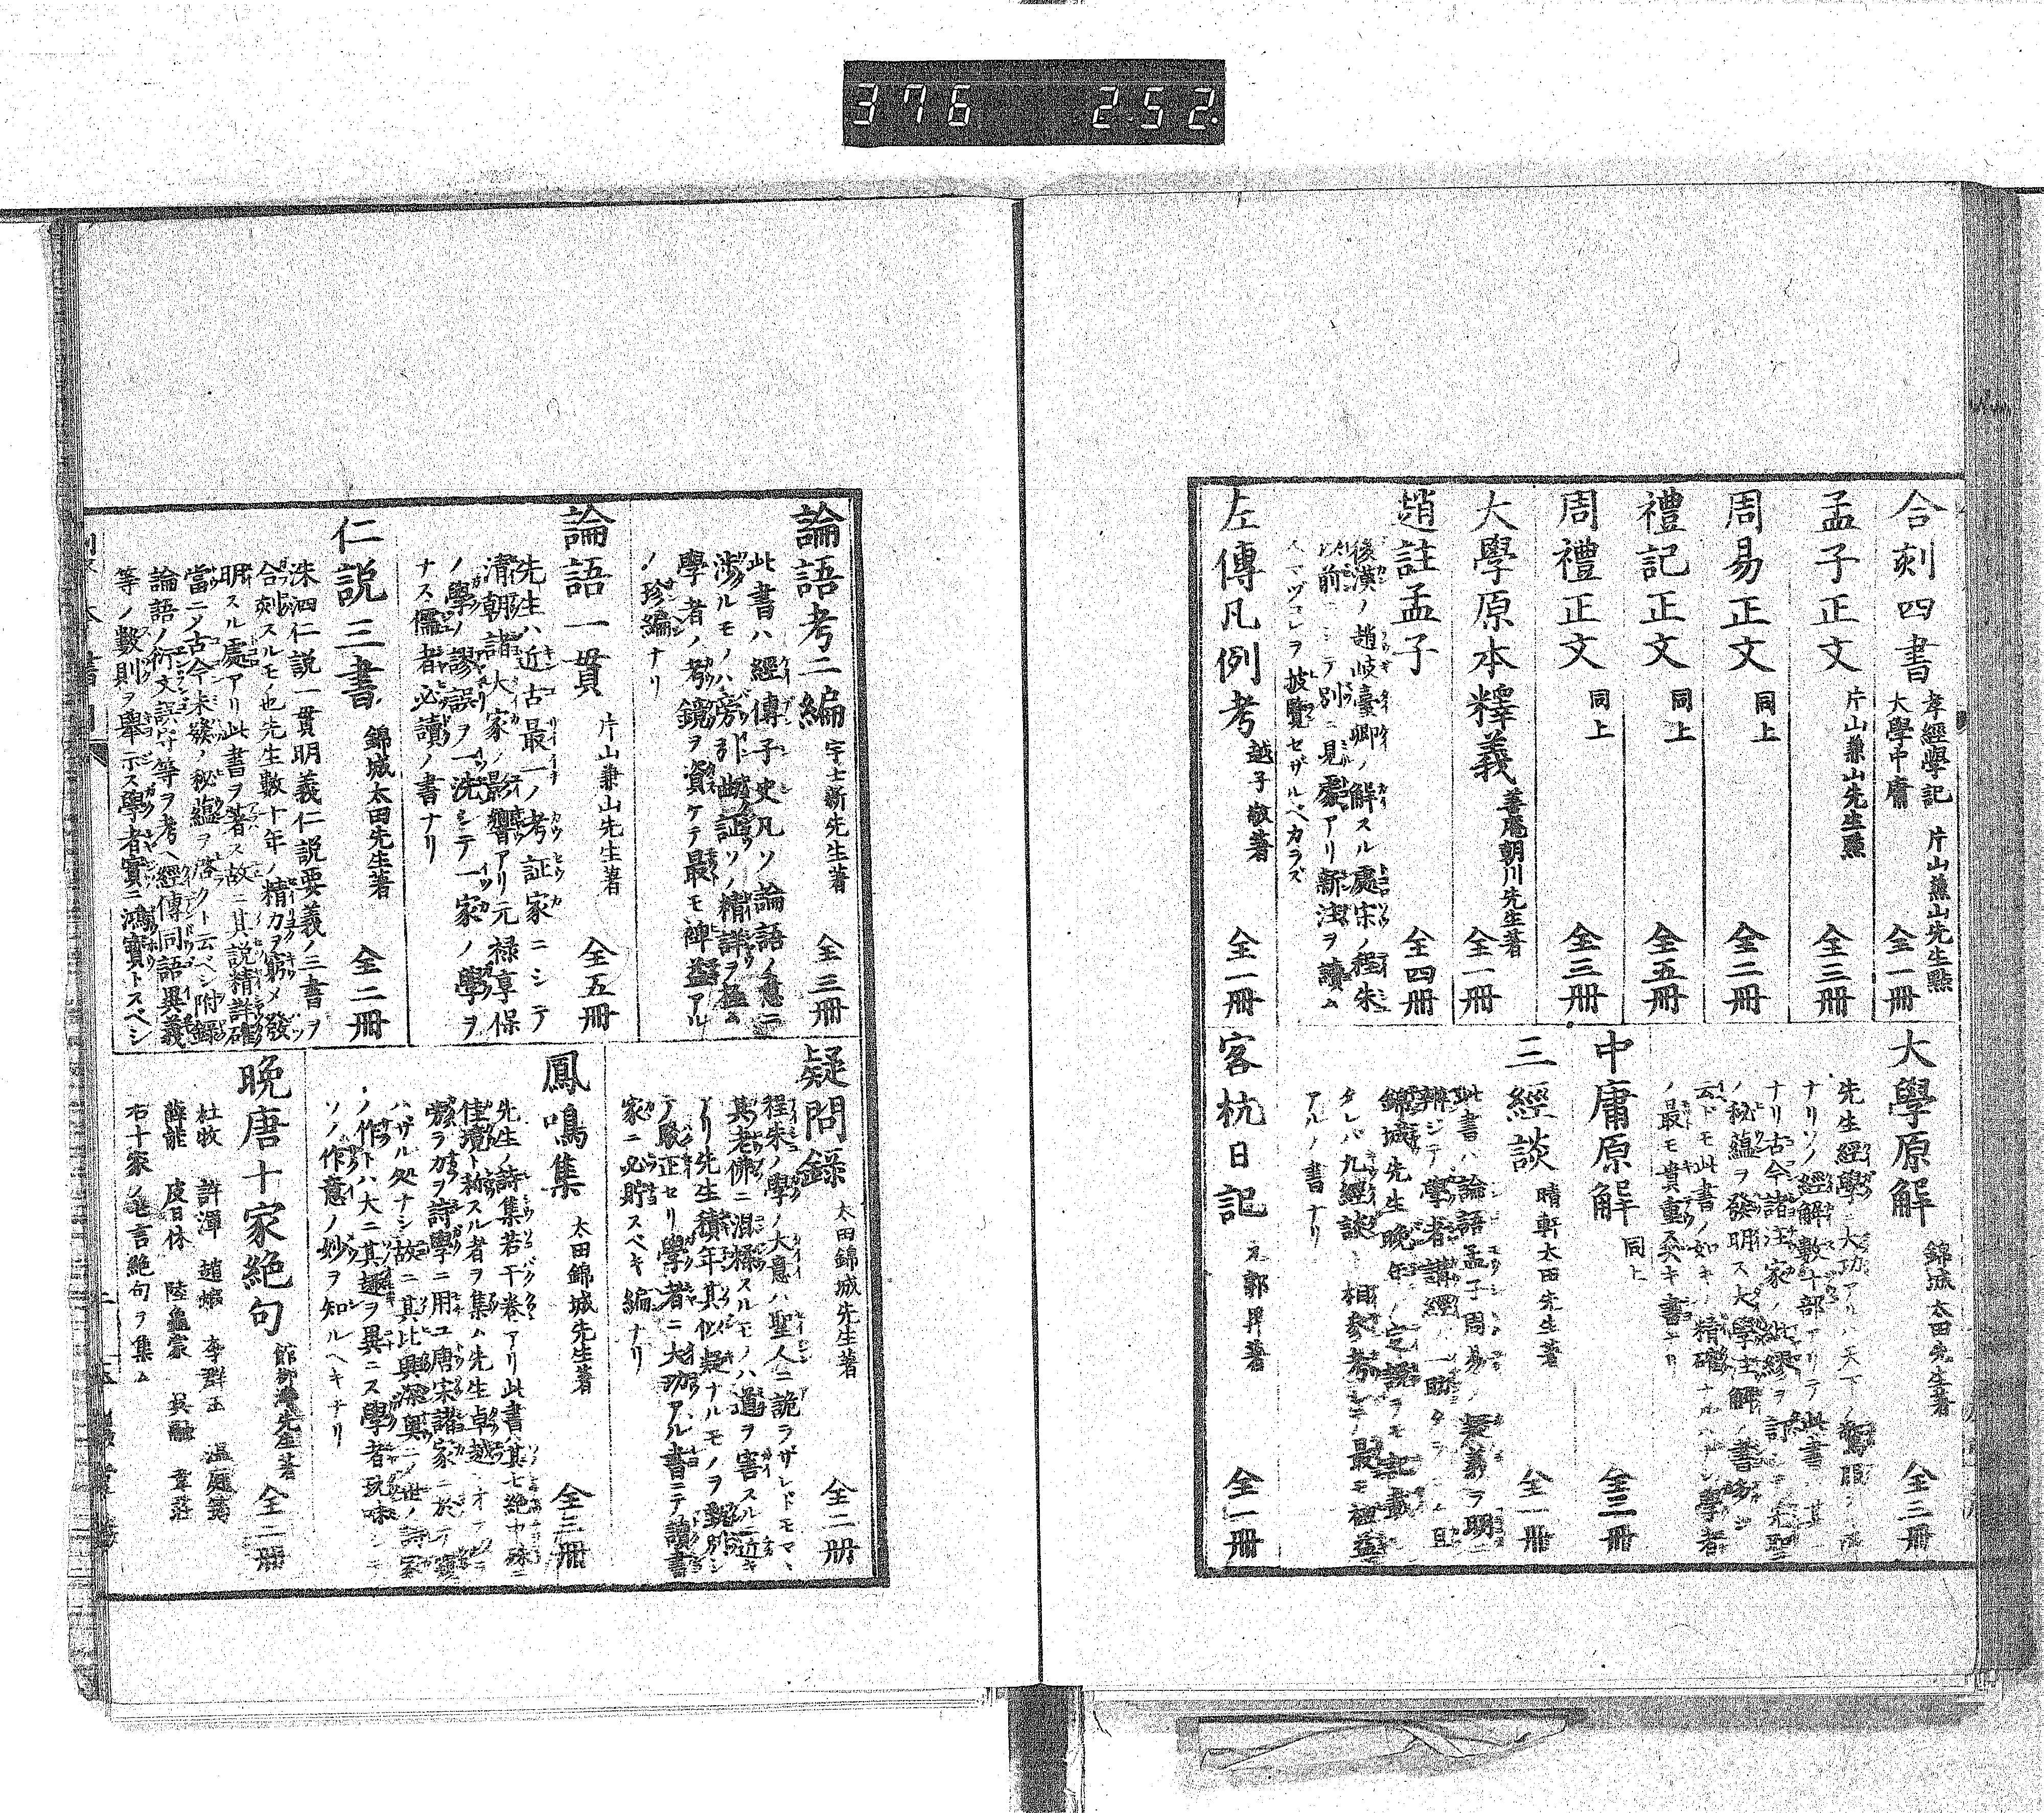 376 2.52.
合刻四書 孝經學記 大學中庸 片山兼山先生點 全一冊
孟子正文 片山兼山先生點 全三冊
周易正文 同上 全二冊
禮記正文 同上 全五冊
周禮正文 同上 全三冊
大學原本釋義 善庵朝川先生著 全一冊
趙註孟子 全四冊
後漢ノ趙岐臺卿ノ解スル處宋ノ程朱
以前ニシテ別ニ見處アリ新注ヲ讀ム
人マヅコレヲ披覽セザルベカラズ
左傳凡例考 越子敬著 全一冊
大學原解 錦城太田先生著 全二冊
先生經學ニ大功アルハ天下ノ
ナリソノ經解數十部アリテ此書
ナリ古今諸注家ノ紕繆ヲ訂シテ先聖
ノ秘蘊ヲ發明ス大學注解ノ書
云ドモ此書ノ如キノ精確ナルハナシ學者
ノ最モ貴重スベキ書ナリ
中庸原解 同上 全三冊
三經談 晴軒太田先生著 全一冊
此書ハ論語孟子周易ノ疑義ヲ明ニ
辨シテ學者講經ノ一助タラシム且
錦城先生晩年ノ定說ヲモ載
タレバ九經談ト相參考シテ最モ裨益
アルノ書ナリ
客杭日記 元郭畀著 全一冊
論語考二編 宇士新先生著 全三冊
此書ハ經傳子史凡ソ論語ノ意ニ
渉ルモノハ旁引曲證ソノ精詳ヲ極ム
學者ノ考鏡ヲ資ケテ最モ裨益アル
ノ珍編ナリ
論語一貫 片山兼山先生著 全五冊
先生ハ近古最一ノ考証家ニシテ
清朝諸大家ノ影響アリ元禄享保
ノ學ノ謬誤ヲ一洗シテ一家ノ學ヲ
ナス儒者必讀ノ書ナリ
仁説三書 錦城太田先生著 全二冊
洙泗仁説一貫明義仁説要義ノ三書ヲ
合刻スルモノ也先生數十年ノ精力ヲ窮メ發
明スル處アリ此書ヲ著ス故ニ其説精詳確
當ニノ古今未發ノ秘蘊ヲ啓クト云ベシ附錄
論語ノ衍文誤字等ヲ考ヘ經傳同語異義
等ノ數則ヲ擧示ス學者實ニ鴻寶トスベシ
疑問錄 太田錦城先生著 全二册
程朱ノ學ノ大意ハ聖人ニ詭ラザレドモマヽ
其老佛ニ混糅スルモノハ道ヲ害スルニ近キ
アリ先生積年其似疑ナルモノヲ甄別シ
テ駁正セリ學者ニ大功アル書ニテ讀書
家ニ必貯スベキ編ナリ
鳳鳴集 太田錦城先生著 全三冊
先生ノ詩集若干卷アリ此書ハ其七絶中殊ニ
佳境ト称スル者ヲ集ム先生卓越ノオ
旁ラ力ヲ詩學ニ用ユ唐宋諸家ニ於テ窺
ハザル処ナシ故ニ其比興深奥ニノ世ノ詩家
ノ作トハ大ニ其趣ヲ異ニス學者玩味シテ
ソノ作意ノ妙ヲ知ルヘキナリ
晩唐十家絶句 館柳灣先生著 全二册
杜牧 許渾 趙嘏 李群玉 温庭筠
薛能 皮日休 陸龜蒙 呉融 韋莊
右十家ノ七言絶句ヲ集ム